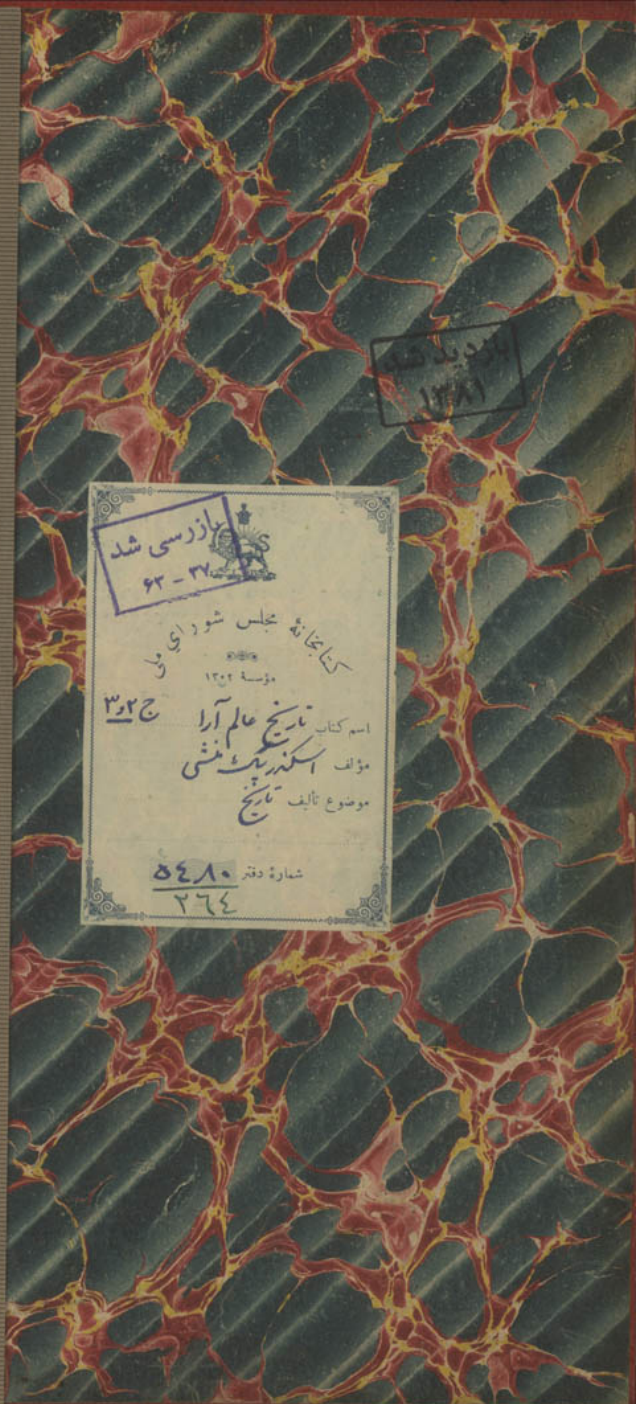 بازدید شد
۱۳۸۱
بازرسی شد
۳۷ - ۶۳
کتابخانهٔ مجلس شورای ملی
مؤسسهٔ ۱۳۰۲
اسم کتاب تاریخ عالم آرا ج ۲و۳
مؤلف اسکندربیک منشی
موضوع تألیف تاریخ
شمارهٔ دفتر ۵۴۸۰
۲۶۴